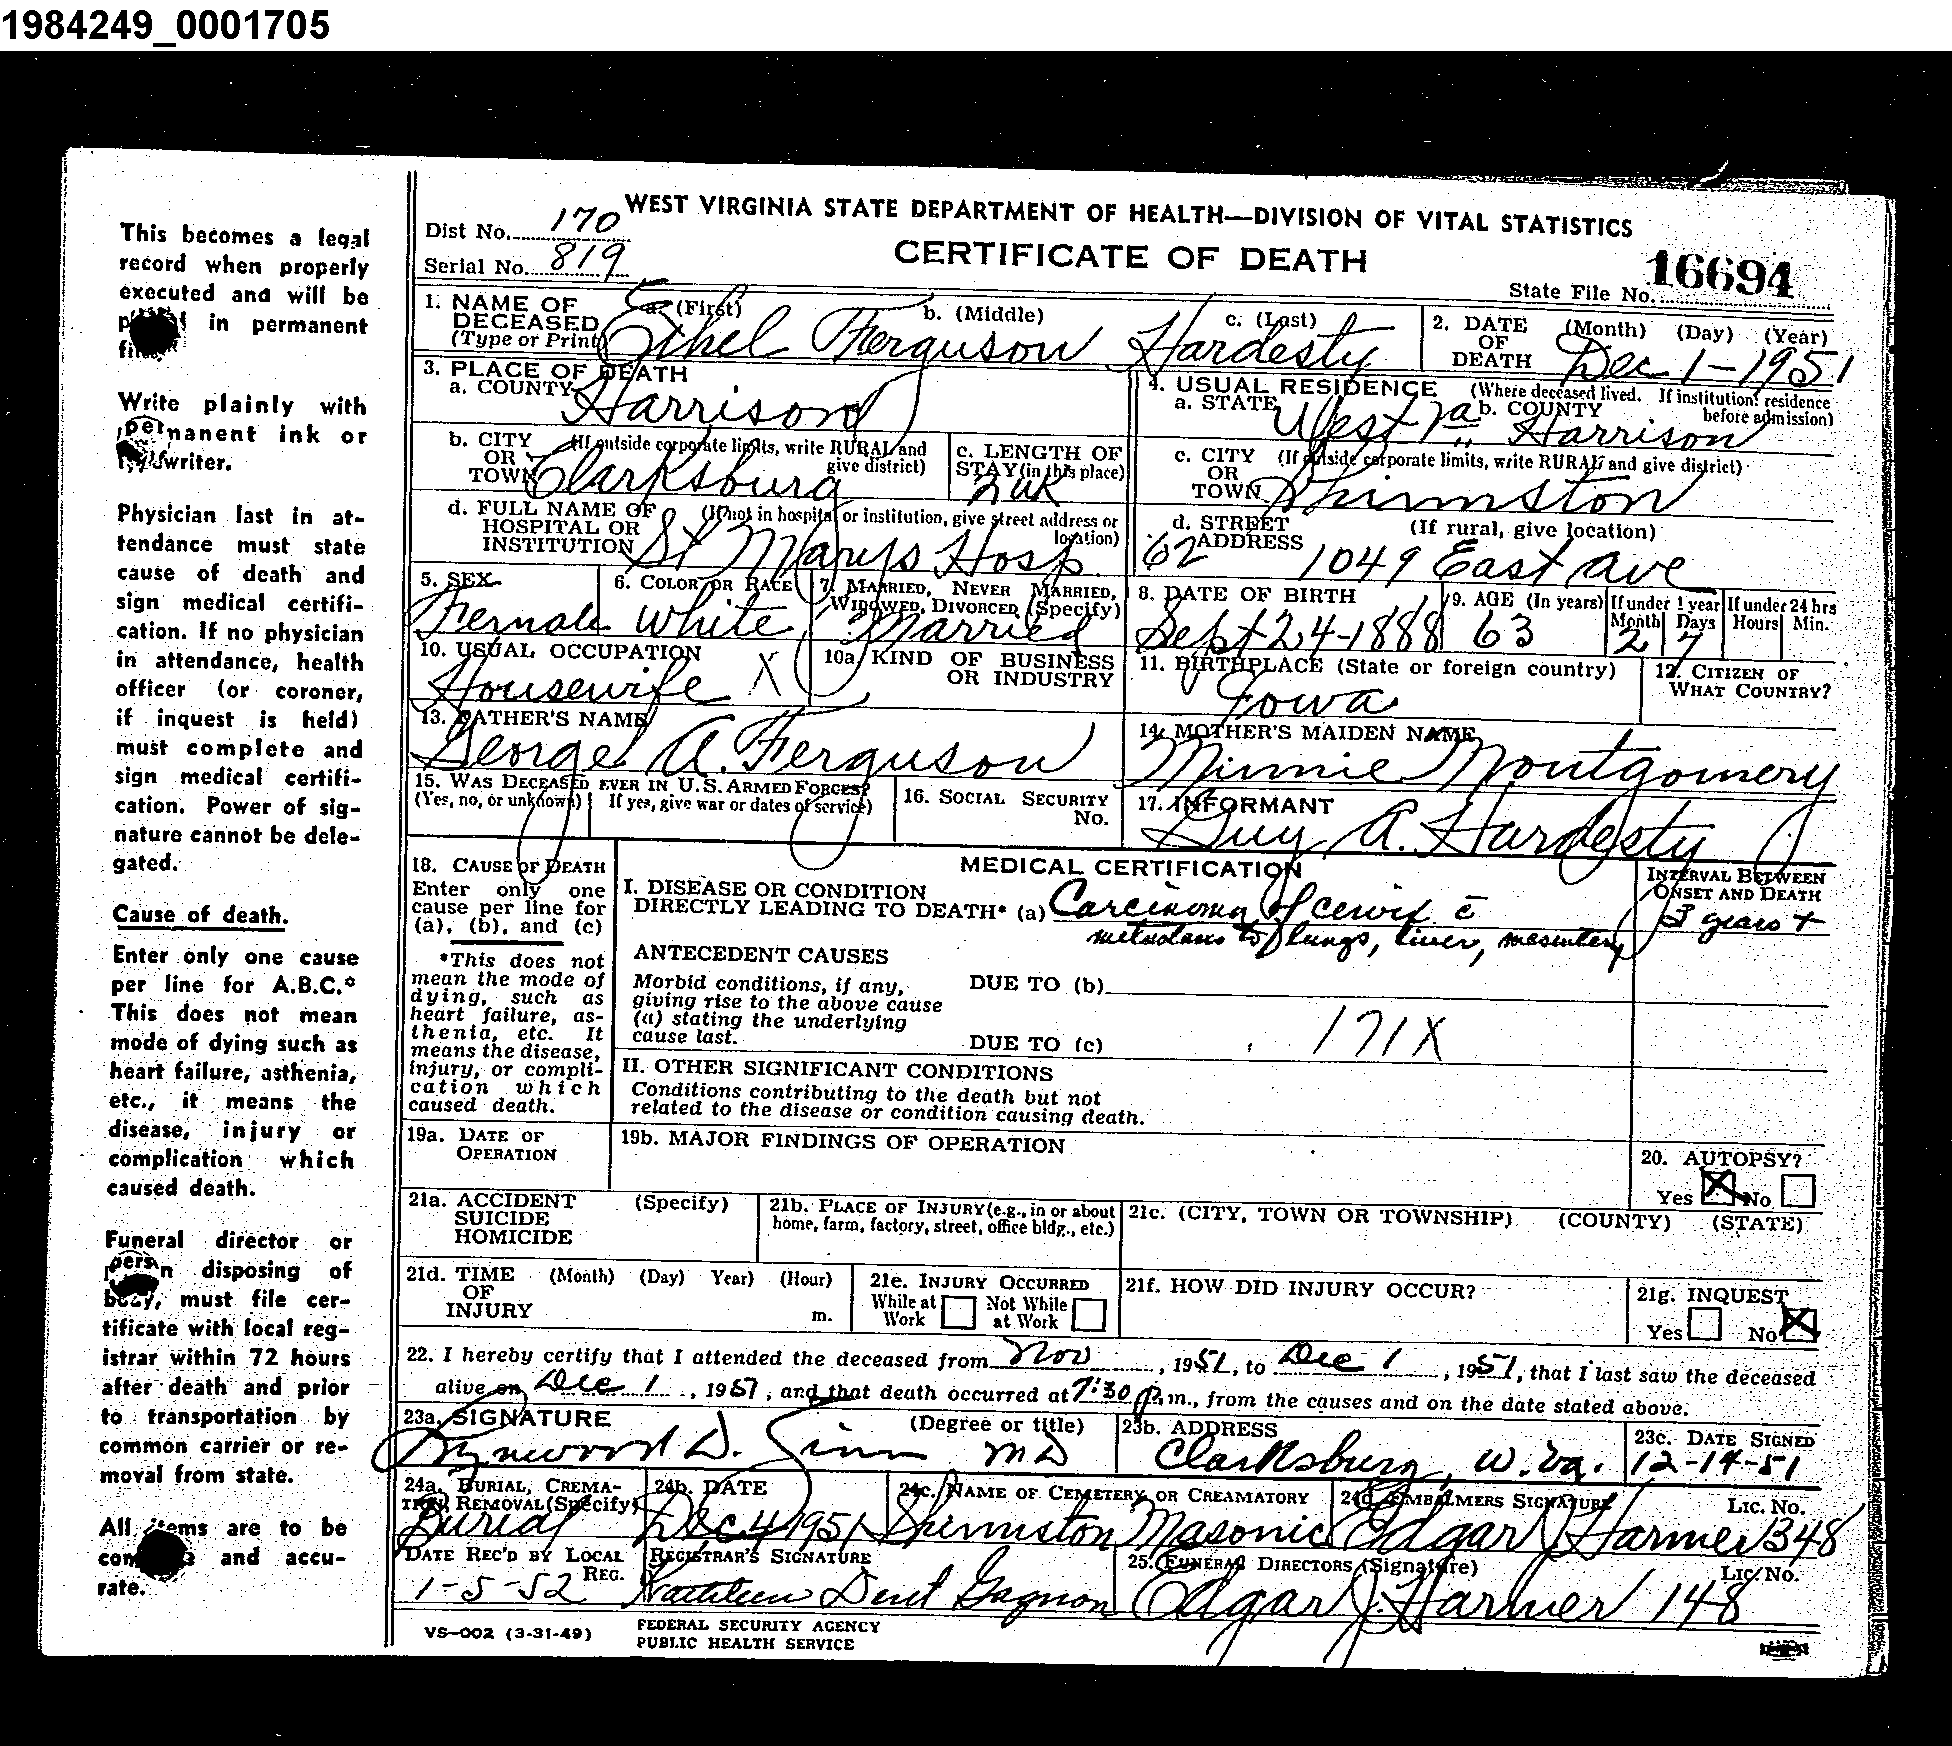 1984249_0001705
This becomes a legal
record when properly
executed and will be
in permanent
Write plainly with
permanent ink or
Physician last in at-
tendance must state
cause of death and
sign medical certifi-
cation. If no physician
in attendance, health
officer (or coroner,
if inquest is held)
must complete and
sign medical certifi-
cation. Power of sig-
nature cannot be dele-
gated.
Cause of death.
Enter only one cause
per line for A.B.C.*
This does not mean
mode of dying such as
heart failure, asthenia,
etc., it means the
disease, injury or
complication which
caused death.
Funeral director or
person disposing of
body, must file cer-
tificate with local reg-
istrar within 72 hours
after death and prior
to transportation by
common carrier or re-
moval from state.
All items are to be
and accu-
rate.
WEST VIRGINIA STATE DEPARTMENT OF HEALTH—DIVISION OF VITAL STATISTICS
Dist No. 170
CERTIFICATE OF DEATH
Serial No. 819
State File No. 16694
1. NAME OF DECEASED (Type or Print) a. (First) b. (Middle) c. (Last)
Ethel Ferguson Hardesty
2. DATE OF DEATH (Month) (Day) (Year)
Dec 1-1951
3. PLACE OF DEATH
a. COUNTY Harrison
4. USUAL RESIDENCE (Where deceased lived. If institution: residence before admission)
a. STATE West Va b. COUNTY Harrison
b. CITY OR TOWN (If outside corporate limits, write RURAL and give district)
Clarksburg
c. LENGTH OF STAY (in this place)
2 wk
c. CITY OR TOWN (If outside corporate limits, write RURAL and give district)
Shinnston
d. FULL NAME OF HOSPITAL OR INSTITUTION (If not in hospital or institution, give street address or location)
St Marys Hosp
d. STREET ADDRESS (If rural, give location)
62 1049 East Ave
5. SEX
Female
6. COLOR OR RACE
White
7. MARRIED, NEVER MARRIED, WIDOWED, DIVORCED (Specify)
Married
8. DATE OF BIRTH
Sept 24-1888
9. AGE (In years)
63
If under 1 year Month Days
2 7
If under 24 hrs Hours Min.
10. USUAL OCCUPATION
Housewife X
10a. KIND OF BUSINESS OR INDUSTRY
11. BIRTHPLACE (State or foreign country)
Iowa
12. CITIZEN OF WHAT COUNTRY?
13. FATHER'S NAME
George A. Ferguson
14. MOTHER'S MAIDEN NAME
Minnie Montgomery
15. WAS DECEASED EVER IN U.S. ARMED FORCES?
(Yes, no, or unknown) If yes, give war or dates of service)
16. SOCIAL SECURITY No.
17. INFORMANT
Guy A. Hardesty
18. CAUSE OF DEATH
Enter only one
cause per line for
(a), (b), and (c)
*This does not
mean the mode of
dying, such as
heart failure, as-
thenia, etc. It
means the disease,
injury, or compli-
cation which
caused death.
MEDICAL CERTIFICATION
INTERVAL BETWEEN ONSET AND DEATH
I. DISEASE OR CONDITION
DIRECTLY LEADING TO DEATH* (a) Carcinoma of cervix c̄
3 years +
to lungs, liver, mesentery
ANTECEDENT CAUSES
Morbid conditions, if any,
giving rise to the above cause
(a) stating the underlying
cause last.
DUE TO (b)
DUE TO (c)
171X
II. OTHER SIGNIFICANT CONDITIONS
Conditions contributing to the death but not
related to the disease or condition causing death.
19a. DATE OF OPERATION
19b. MAJOR FINDINGS OF OPERATION
20. AUTOPSY?
Yes X No
21a. ACCIDENT SUICIDE HOMICIDE (Specify)
21b. PLACE OF INJURY (e.g., in or about home, farm, factory, street, office bldg., etc.)
21c. (CITY, TOWN OR TOWNSHIP) (COUNTY) (STATE)
21d. TIME OF INJURY (Month) (Day) Year) (Hour) m.
21e. INJURY OCCURRED
While at Work Not While at Work
21f. HOW DID INJURY OCCUR?
21g. INQUEST
Yes No X
22. I hereby certify that I attended the deceased from Nov, 1951, to Dec 1, 1951, that I last saw the deceased
alive on Dec 1, 1951, and that death occurred at 7:30 p.m., from the causes and on the date stated above.
23a. SIGNATURE (Degree or title)
Lynwood D. Zinn MD
23b. ADDRESS
Clarksburg, W. Va.
23c. DATE SIGNED
12-14-51
24a. BURIAL, CREMATION, REMOVAL (Specify)
Burial
24b. DATE
Dec 4 1951
24c. NAME OF CEMETERY OR CREAMATORY
Shinnston Masonic
24d. EMBALMERS SIGNATURE Lic. No.
Edgar J Harmer 1348
DATE REC'D BY LOCAL REG.
1-5-52
REGISTRAR'S SIGNATURE
Kathleen Dent Gagnon
25. FUNERAL DIRECTORS (Signature) Lic. No.
Edgar J. Harmer 148
VS-002 (3-31-49)
FEDERAL SECURITY AGENCY
PUBLIC HEALTH SERVICE